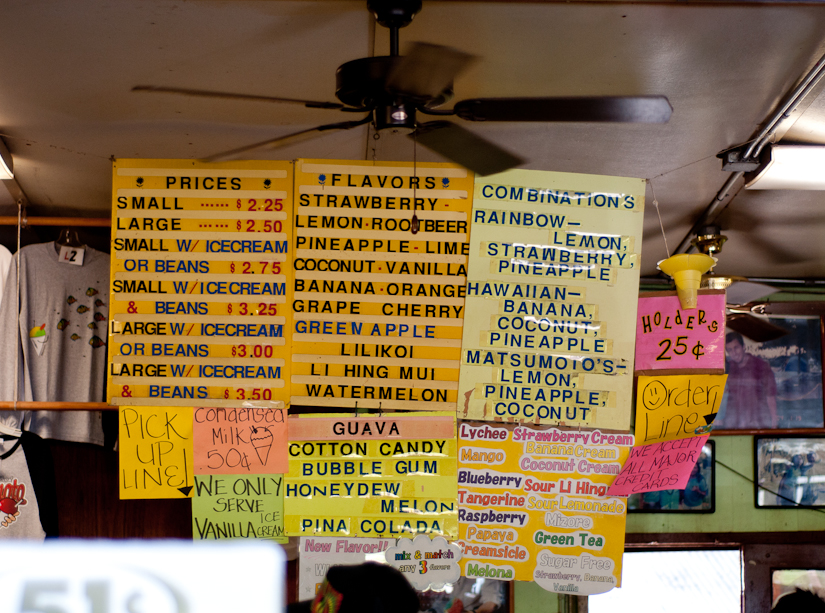 PRICES
SMALL ...... $ 2.25
LARGE ...... $ 2.50
SMALL W/ ICECREAM
OR BEANS $ 2.75
SMALL W/ ICECREAM
& BEANS $ 3.25
LARGE W/ ICECREAM
OR BEANS $3.00
LARGE W/ ICECREAM
& BEANS $ 3.50
FLAVORS
STRAWBERRY-
LEMON·ROOTBEER
PINEAPPLE-LIME
COCONUT-VANILLA
BANANA-ORANGE
GRAPE CHERRY
GREEN APPLE
LILIKOI
LI HING MUI
WATERMELON
COMBINATION'S
RAINBOW—
LEMON,
STRAWBERRY,
PINEAPPLE
HAWAIIAN—
BANANA,
COCONUT,
PINEAPPLE
MATSUMOTO'S—
LEMON,
PINEAPPLE,
COCONUT
HOLDERS
25¢
Order
Line
WE ACCEPT
ALL MAJOR
CREDIT
CARDS
PICK
UP
LINE!
Condensed
Milk
50¢
WE ONLY
SERVE
VANILLA ICE CREAM
GUAVA
COTTON CANDY
BUBBLE GUM
HONEYDEW
MELON
PINA COLADA
Lychee Strawberry Cream
Mango Banana Cream
Coconut Cream
Blueberry Sour Li Hing
Tangerine Sour Lemonade
Raspberry Mizore
Papaya Green Tea
Creamsicle
Melona
Sugar Free
Strawberry, Banana,
Vanilla
New Flavor!!
mix & match
any 3 flavors
L2
51